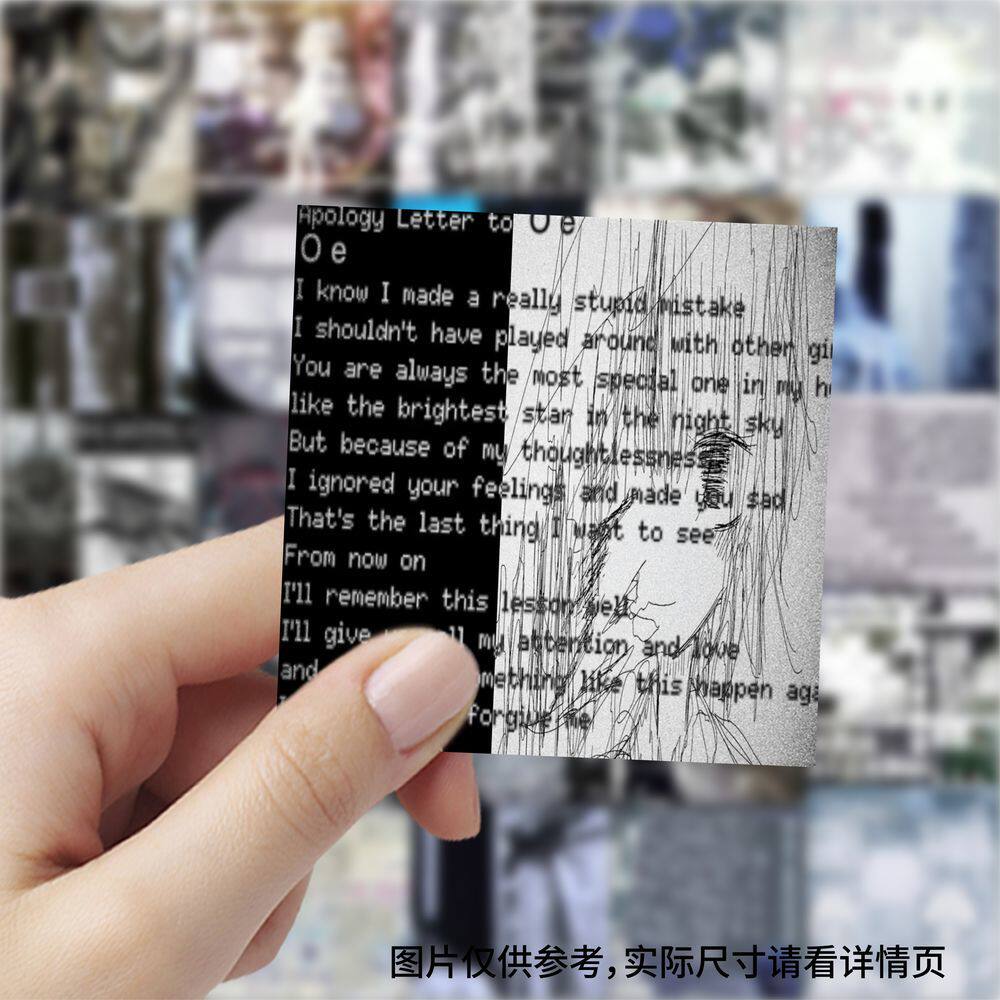 Apology Letter to O e
O e
I know I made a really stupid mistake
I shouldn't have played around with other gi
You are always the most special one in my h
like the brightest star in the night sky
But because of my thoughtlessness
I ignored your feelings and made you sad
That's the last thing I want to see
From now on
I'll remember this lesson well
I'll give all my attention and love
and mething like this happen aga
forgive me
图片仅供参考，实际尺寸请看详情页